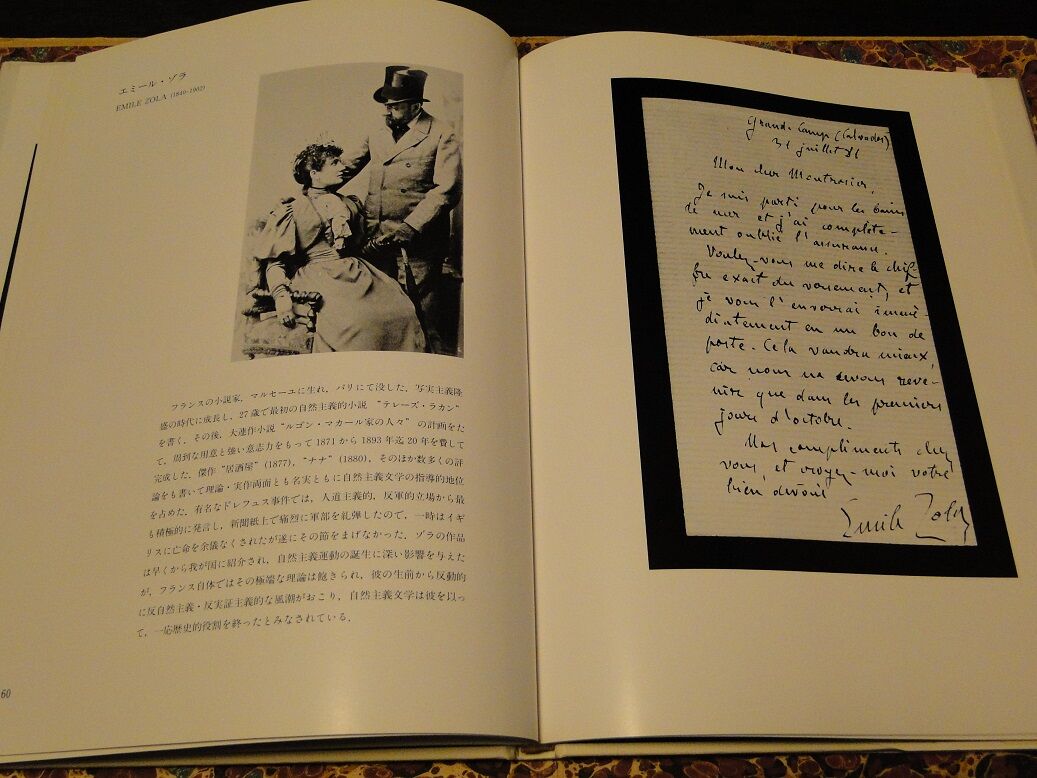 エミール・ゾラ
EMILE ZOLA (1840-1902)
フランスの小説家，マルセーユに生れ，パリにて没した．写実主義隆
盛の時代に成長し，27歳で最初の自然主義的小説 “テレーズ・ラカン”
を書く．その後，大連作小説“ルゴン・マカール家の人々” の計画をた
て，周到な用意と強い意志力をもって1871から1893年迄20年を費して
完成した．傑作“居酒屋”(1877)，“ナナ”(1880)，そのほか数多くの評
論をも書いて理論・実作両面とも名実ともに自然主義文学の指導的地位
を占めた．有名なドレフュス事件では，人道主義的，反軍的立場から最
も積極的に発言し，新聞紙上で痛烈に軍部を糺弾したので，一時はイギ
リスに亡命を余儀なくされたが遂にその節をまげなかった．ゾラの作品
は早くから我が国に紹介され，自然主義運動の誕生に深い影響を与えた
が，フランス自体ではその極端な理論は飽きられ，彼の生前から反動的
に反自然主義・反実証主義的な風潮がおこり，自然主義文学は彼を以っ
て，一応歴史的役割を終ったとみなされている．
60
Grand-Camp (Calvados)
31 juillet 81
Mon cher Montrosier,
Je suis parti pour les bains
de mer et j'ai complète-
ment oublié l'assurance.
Voulez-vous me dire le chif-
fre exact du versement, et
je vous l'enverrai immé-
diatement en un bon de
poste. Cela vaudra mieux,
car nous ne devons reve-
nir que dans les premiers
jours d'octobre.
Mes compliments chez
vous, et croyez-moi votre
bien dévoué
Emile Zola